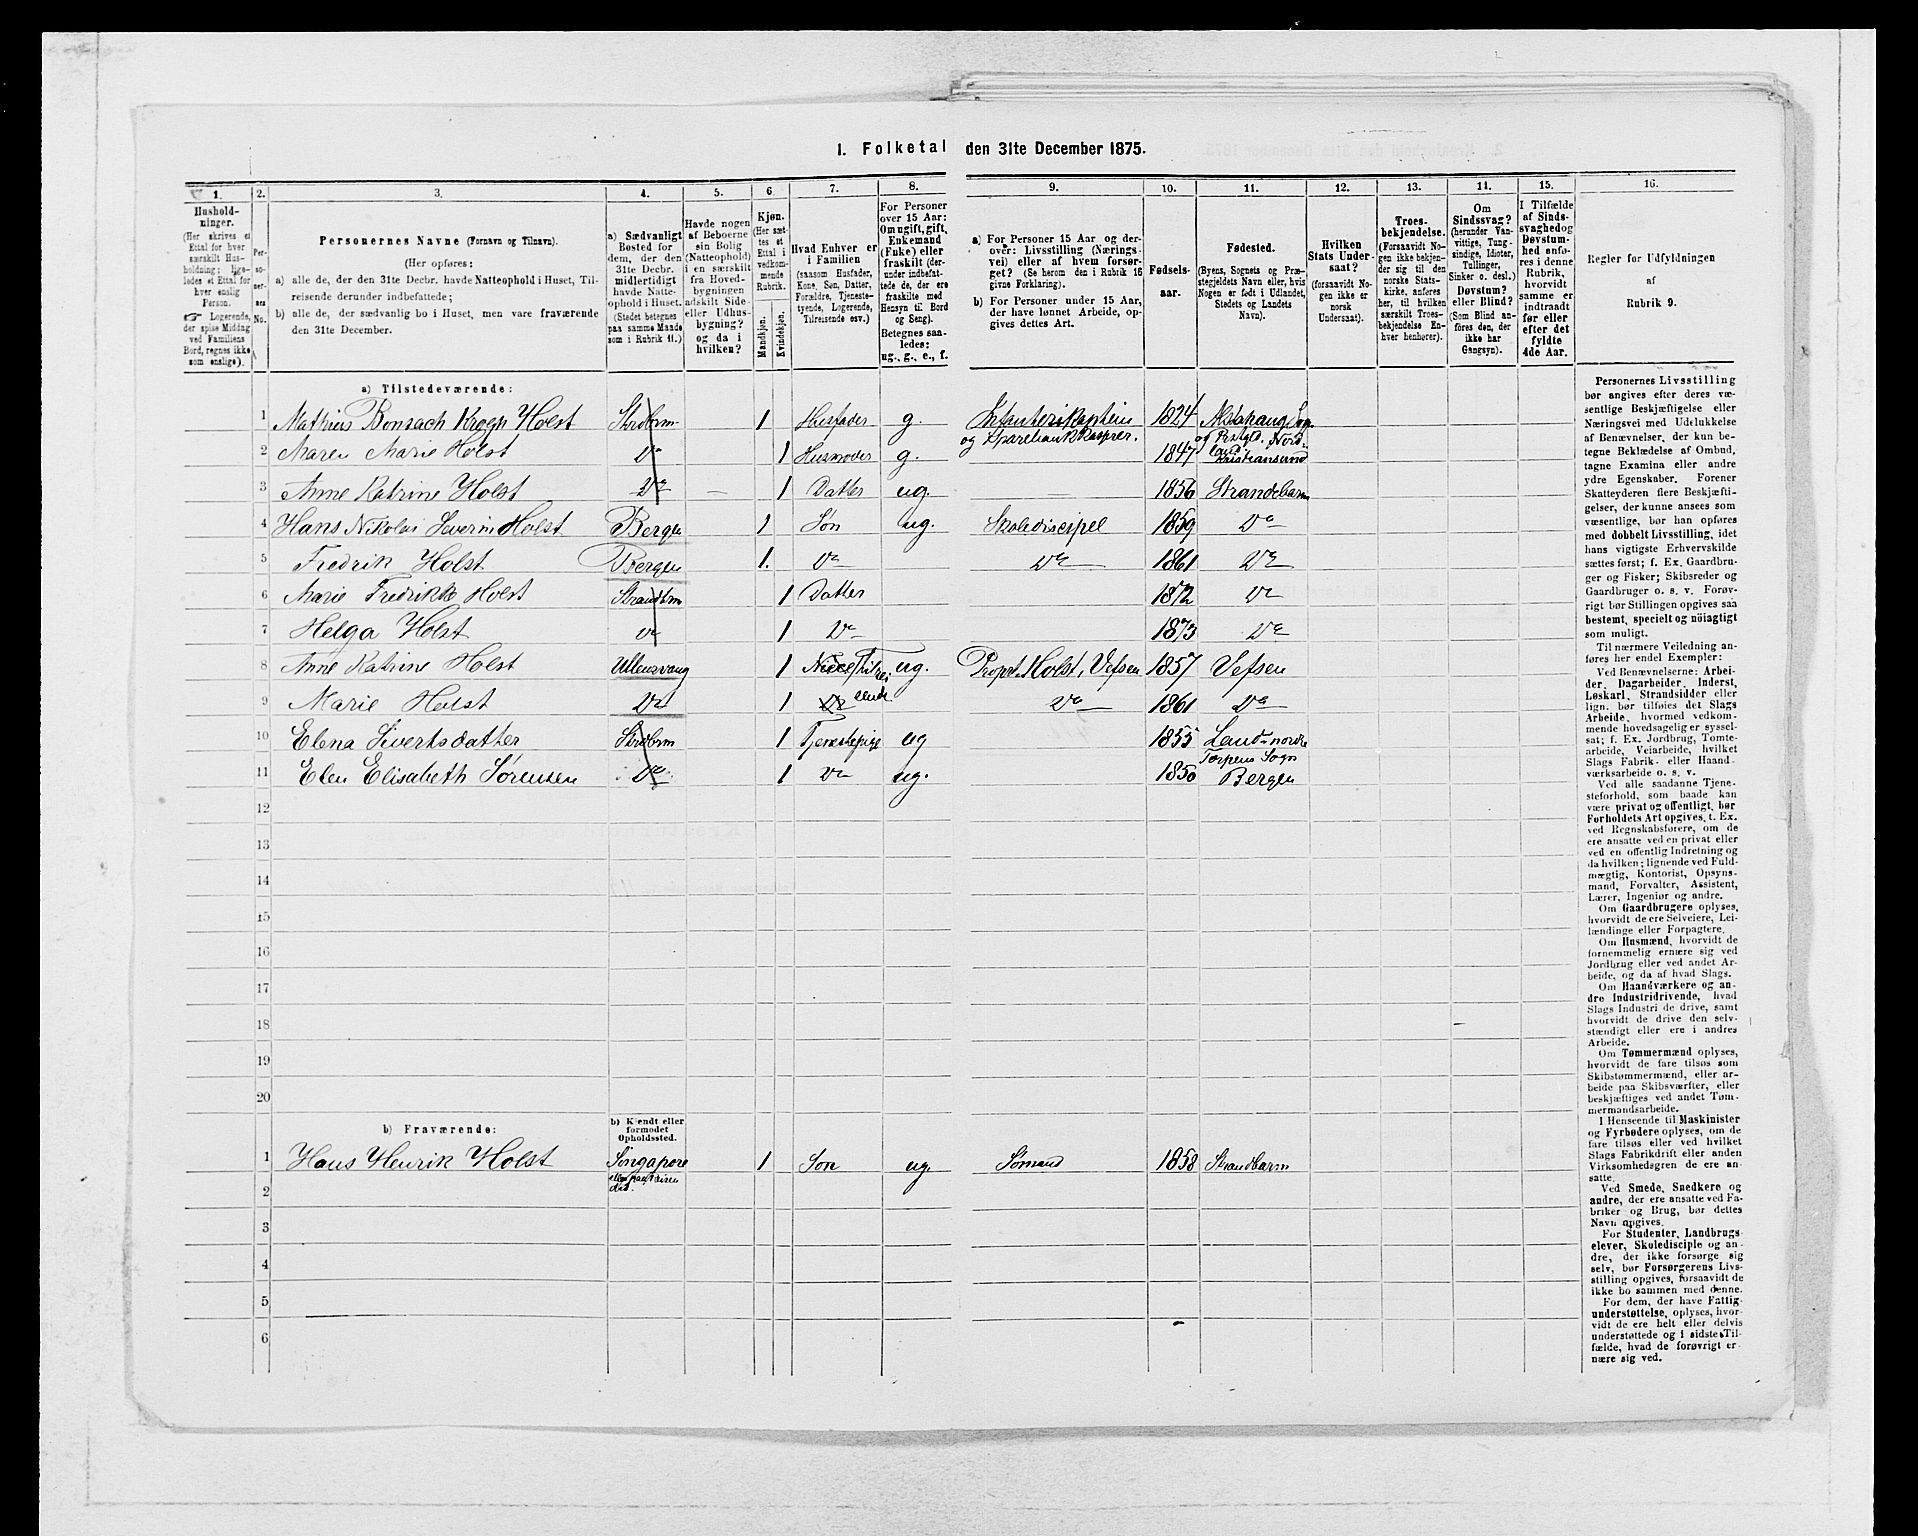 1. Folketal den 31te December 1875.
1. 2. 3. 4. 5. 6. 7. 8. 9. 10. 11. 12. 13. 14. 15. 16.
Hushold-
ninger.
(Her skrives et
Ettal for hver
særskilt Hus-
holdning; lige-
ledes et Ettal for
hver enslig
Person.
☞ Logerende,
der spise Middag
ved Familiens
Bord, regnes ikke
som enslige).
Per-
so-
ner-
nes
No.
Personernes Navne (Fornavn og Tilnavn).
(Her opføres:
a) alle de, der den 31te Decbr. havde Natteophold i Huset, Til-
reisende derunder indbefattede;
b) alle de, der sædvanlig bo i Huset, men vare fraværende
den 31te December.
a) Sædvanligt
Bosted for
dem, der den
31te Decbr.
midlertidigt
havde Natte-
ophold i Huset.
(Stedet betegnes
paa samme Maade
som i Rubrik 11.)
Havde nogen
af Beboerne
sin Bolig
(Natteophold)
i en særskilt
fra Hoved-
bygningen
adskilt Side-
eller Udhus-
bygning?
og da i
hvilken?
Kjøn.
(Her sæt-
tes et
Ettal i
vedkom-
mende
Rubrik.
Mandkjøn.
Kvindekjøn.
Hvad Enhver er
i Familien
(saasom Husfader,
Kone, Søn, Datter,
Forældre, Tjeneste-
tyende, Logerende,
Tilreisende osv.)
For Personer
over 15 Aar:
Om ugift, gift,
Enkemand
(Enke) eller
fraskilt (der-
under indbefat-
tede de, der ere
fraskilte med
Hensyn til Bord
og Seng).
Betegnes saa-
ledes:
ug., g., e., f.
a) For Personer 15 Aar og der-
over: Livsstilling (Nærings-
vei) eller af hvem forsør-
get? (Se herom den i Rubrik 16
givne Forklaring).
b) For Personer under 15 Aar,
der have lønnet Arbeide, op-
gives dettes Art.
Fødsels-
aar.
Fødested.
(Byens, Sognets og Præ-
stegjeldets Navn eller, hvis
Nogen er født i Udlandet,
Stedets og Landets
Navn).
Hvilken
Stats Under-
saat?
(forsaavidt No-
gen ikke er
norsk
Undersaat).
Troes-
bekjendelse.
(Forsaavidt No-
gen ikke bekjen-
der sig til den
norske Stats-
kirke, anføres
her, til hvilken
særskilt Troes-
bekjendelse En-
hver henhører).
Om
Sindssvag?
(herunder Van-
vittige, Tung-
sindige, Idioter,
Tullinger,
Sinker o. desl.)
Døvstum?
eller Blind?
(Som Blind an-
føres den, der
ikke har
Gangsyn).
I Tilfælde
af Sinds-
svaghed og
Døvstum-
hed anfø-
res i denne
Rubrik,
hvorvidt
samme er
indtraadt
før eller
efter det
fyldte
4de Aar.
Regler for Udfyldningen
af
Rubrik 9.
a) Tilstedeværende:
1 Mathias Bonsach Krogh Holst Strdbrm 1 Husfader g. Infanterikaptein 1824 Alstahaug Sogn
og Sparebankkasserer. og Prstgld. Nord-
land.
2 Maren Marie Holst Do 1 Husmoder g. 1847 Kristiansund
3 Anne Katrine Holst Do — 1 Datter ug. — 1856 Strandebarm
4 Hans Nikolai Severin Holst Bergen 1 Søn ug. Skoledisipel 1859 Do
5 Fredrik Holst Bergen 1. Do Do 1861 Do
6 Marie Fredrikke Holst Strandbrm 1 Datter 1872 Do
7 Helga Holst Do 1 Do 1873 Do
8 Anne Katrine Holst Ullensvang 1 Niece, Tilrei- ug. Propst Holst, Vefsen 1857 Vefsen
sende
9 Marie Holst Do 1 Do Do 1861 Do
10 Elena Sivertsdatter Strdbrm 1 Tjenestepige ug 1855 Land-nordre
Torpens Sogn
11 Elen Elisabeth Sørensen Do 1 Do ug. 1850 Bergen
12
13
14
15
16
17
18
19
20
b) Fraværende:
b) Kjendt eller
formodet
Opholdssted.
1 Hans Henrik Holst Singapore 1 Søn ug. Sømand 1858 Strandbarm
eller paa Reisen
did.
2
3
4
5
6
Personernes Livsstilling
bør angives efter deres væ-
sentlige Beskjæftigelse eller
Næringsvei med Udelukkelse
af Benævnelser, der kun be-
tegne Beklædelse af Ombud,
tagne Examina eller andre
ydre Egenskaber. Forener
Skatteyderen flere Beskjæfti-
gelser, der kunne ansees som
væsentlige, bør han opføres
med dobbelt Livsstilling, idet
hans vigtigste Erhvervskilde
sættes først; f. Ex. Gaardbru-
ger og Fisker; Skibsreder og
Gaardbruger o. s. v. Forøv-
rigt bør Stillingen opgives saa
bestemt, specielt og nøiagtigt
som muligt.
Til nærmere Veiledning an-
føres her endel Exempler:
Ved Benævnelserne: Arbei-
der, Dagarbeider, Inderst,
Løskarl, Strandsidder eller
lign. bør tilføies det Slags
Arbeide, hvormed vedkom-
mende hovedsagelig er syssel-
sat; f. Ex. Jordbrug, Tomte-
arbeide, Veiarbeide, hvilket
Slags Fabrik- eller Haand-
værksarbeide o. s. v.
Ved alle saadanne Tjene-
steforhold, som baade kan
være privat og offentligt, bør
Forholdets Art opgives, t. Ex.
ved Regnskabsførere, om de
ere ansatte ved en privat eller
ved en offentlig Indretning og
da hvilken; lignende ved Fuld-
mægtig, Kontorist, Opsyns-
mand, Forvalter, Assistent,
Lærer, Ingeniør og andre.
Om Gaardbrugere oplyses,
hvorvidt de ere Selveiere, Lei-
lændinge eller Forpagtere.
Om Husmænd, hvorvidt de
fornemmelig ernære sig ved
Jordbrug eller ved andet Ar-
beide, og da af hvad Slags.
Om Haandværkere og an-
dre Industridrivende, hvad
Slags Industri de drive, samt
hvorvidt de drive den selv-
stændigt eller ere i andres
Arbeide.
Om Tømmermænd oplyses,
hvorvidt de fare tilsøs som
Skibstømmermænd, eller ar-
beide paa Skibsværfter, eller
beskjæftiges ved andet Tøm-
mermandsarbeide.
I Henseende til Maskinister
og Fyrbødere oplyses, om de
fare tilsøs eller ved hvilket
Slags Fabrikdrift eller anden
Virksomhedsgren de ere an-
satte.
Ved Smede, Snedkere og
andre, der ere ansatte ved Fa-
briker og Brug, bør dettes
Navn opgives.
For Studenter, Landbrugs-
elever, Skoledisciple og an-
dre, der ikke forsørge sig
selv, bør Forsørgerens Livs-
stilling opgives, forsaavidt de
ikke bo sammen med denne.
For dem, der have Fattig-
understøttelse, oplyses, hvor-
vidt de ere helt eller delvis
understøttede og i sidste Til-
fælde, hvad de forøvrigt er-
nære sig ved.